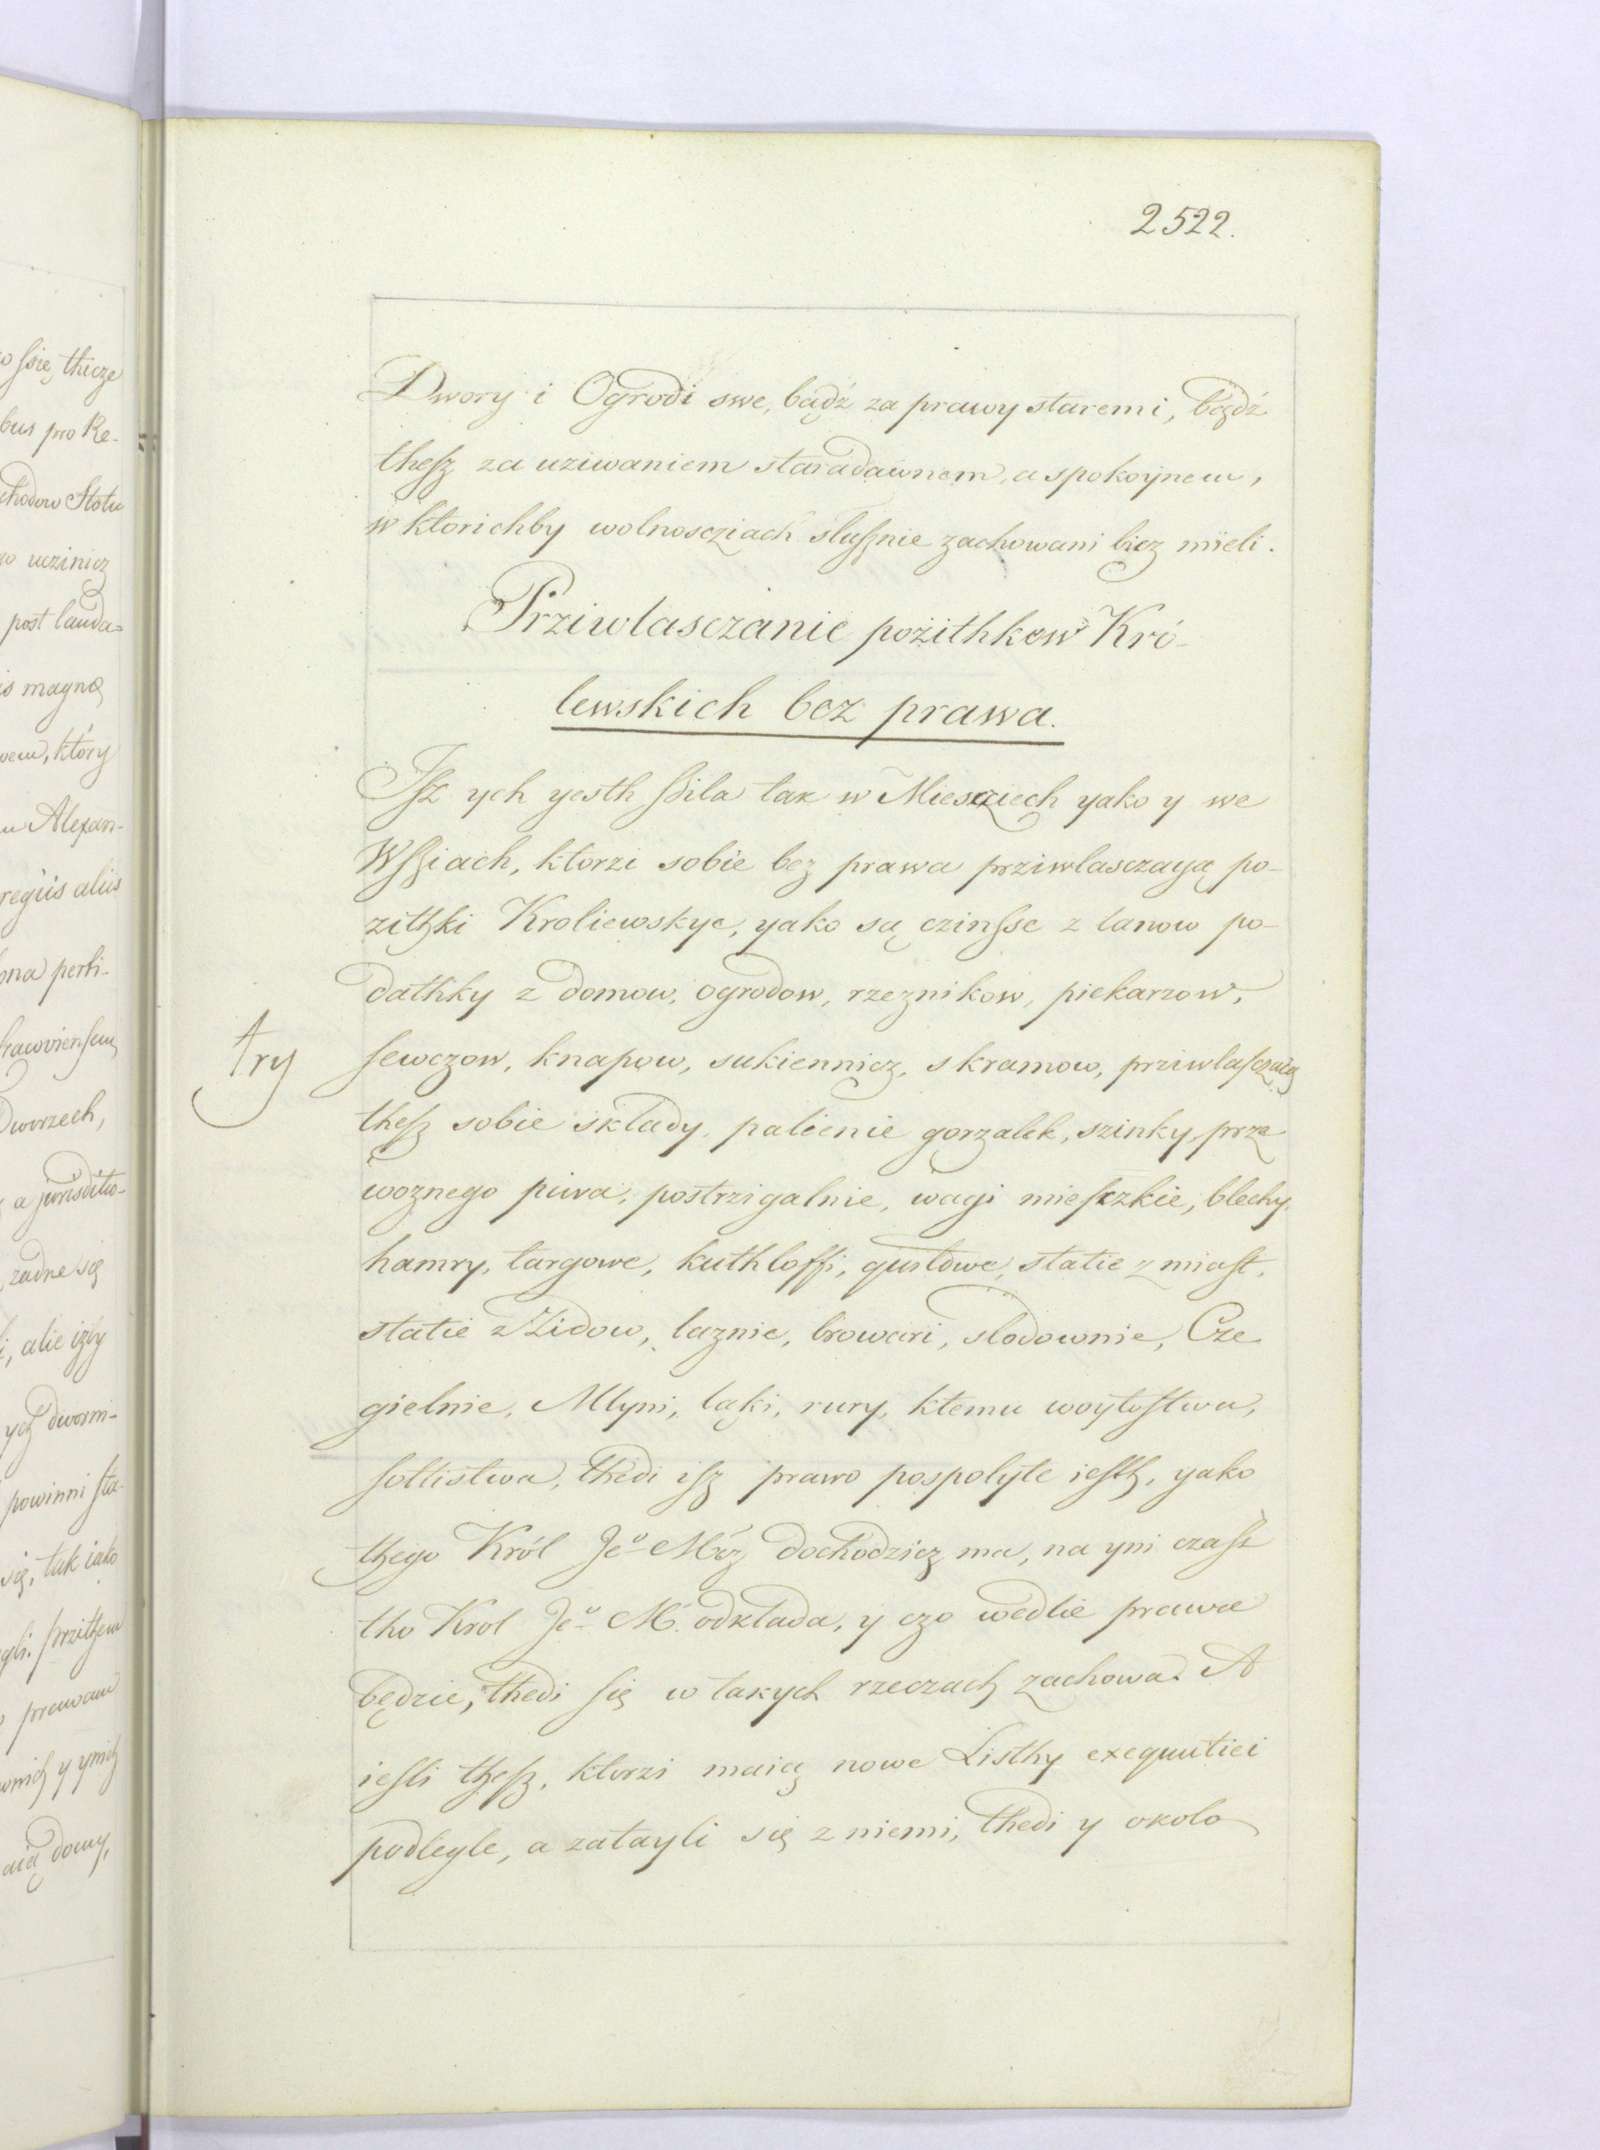 2522.
Dwory i Ogrodi swe, bądź za prawy staremi, bądź
thesz za uziwaniem staradawnem, a spokoynem,
w ktorichby wolnoscziach slusznie zachowani bicz mieli.
Prziwlasczanie pożithkow Kró-
lewskich bez prawa.
Jsz ych yesth sila tak w Miesciech yako y we
Wsziach, ktorzi sobie bez prawa prziwlasczayą po-
zithki Kroliewskye, yako są czinsse z lanow po-
dathky z domow, ogrodow, rzeznikow, piekarzow,
try
sewczow, knapow, sukiennicz, s kramow, prziwlasczaią
thesz sobie sklady, palienie gorzalek, szinky prze
woznego piwa, postrzigalnie, wagi miesczkie, blechy,
hamry, targowe, kuthloffi, statie z miast,
statie z Zidow, laznie, browari, slodownie, Cze
gielnie, Mlyni, ląki, rury, ktemu woytostwa,
soltistwa, thedi isz prawo pospolyte iesth, yako
thego Król Jeo Mćz dochodzicz ma, na yni czasz
tho Krol Jeo M. odklada, y czo wedlie prawa
będzie, thedi się w takych rzeczach zachowa. A
iesli thesz, ktorzi maią nowe Listhy exequutiei
podlegle, a zatayli się z niemi, thedi y okolo
się thicze
bus pro Re-
chodow Stołu
ucziniez
post lauda-
magną
który
Alexan-
regiis aliis
perti-
Dworzech,
a jurisditio-
zadne się
alie izby
ych dworni-
powinni sta-
się, tak iako
przithem
prawam
y ynich
domy,